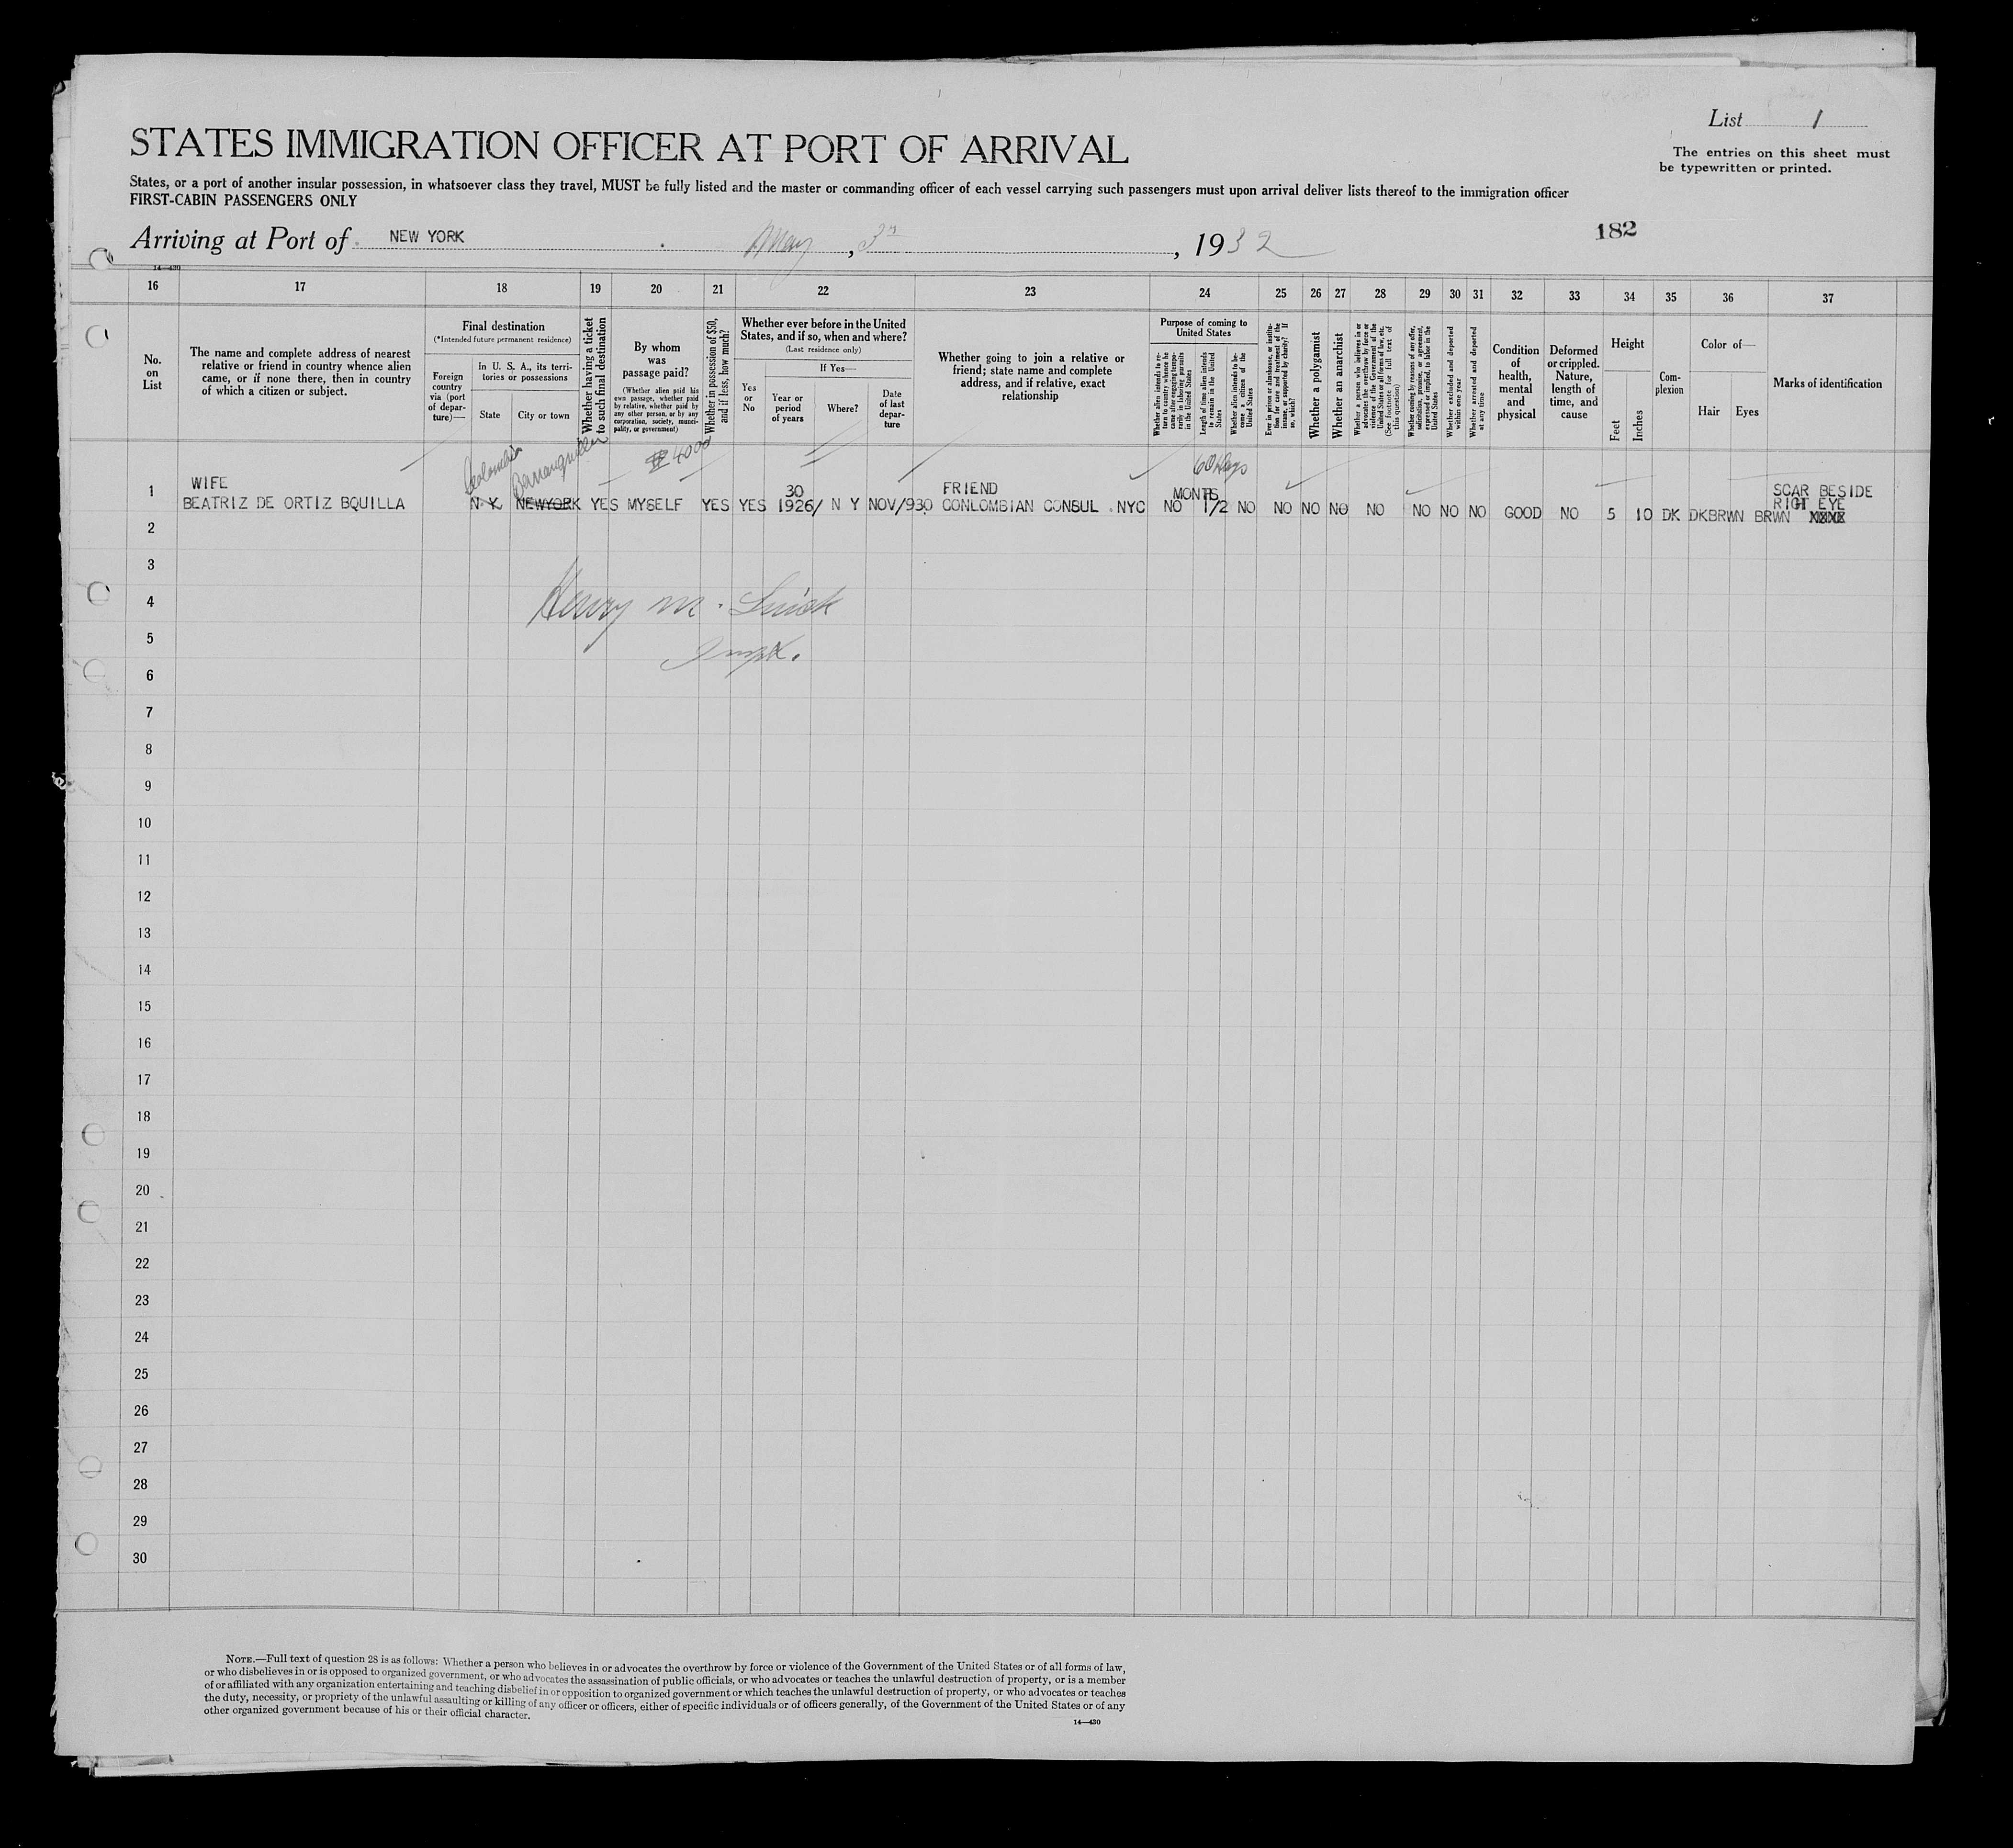 List 1
The entries on this sheet must
be typewritten or printed.
STATES IMMIGRATION OFFICER AT PORT OF ARRIVAL
States, or a port of another insular possession, in whatsoever class they travel, MUST be fully listed and the master or commanding officer of each vessel carrying such passengers must upon arrival deliver lists thereof to the immigration officer
FIRST-CABIN PASSENGERS ONLY
Arriving at Port of NEW YORK May, 3rd, 1932
182
14—430
16 17 18 19 20 21 22 23 24 25 26 27 28 29 30 31 32 33 34 35 36 37
No.
on
List
The name and complete address of nearest
relative or friend in country whence alien
came, or if none there, then in country
of which a citizen or subject.
Final destination
(*Intended future permanent residence)
Foreign
country
via (port
of depar-
ture)—
In U. S. A., its terri-
tories or possessions
State
City or town
Whether having a ticket
to such final destination
By whom
was
passage paid?
(Whether alien paid his
own passage, whether paid
by relative, whether paid by
any other person, or by any
corporation, society, munici-
pality, or government)
Whether in possession of $50,
and if less, how much?
Whether ever before in the United
States, and if so, when and where?
(Last residence only)
If Yes—
Yes
or
No
Year or
period
of years
Where?
Date
of last
depar-
ture
Whether going to join a relative or
friend; state name and complete
address, and if relative, exact
relationship
Purpose of coming to
United States
Whether alien intends to re-
turn to country whence he
came after engaging tempo-
rarily in laboring pursuits
in the United States
Length of time alien intends
to remain in the United
States
Whether alien intends to be-
come a citizen of the
United States
Ever in prison or almshouse, or institu-
tion for care and treatment of the
insane, or supported by charity? If
so, which?
Whether a polygamist
Whether an anarchist
Whether a person who believes in or
advocates the overthrow by force or
violence of the Government of the
United States or all forms of law, etc.
(See footnote for full text of
this question)
Whether coming by reasons of any offer,
solicitation, promise, or agreement,
expressed or implied, to labor in the
United States
Whether excluded and deported
within one year
Whether arrested and deported
at any time
Condition
of
health,
mental
and
physical
Deformed
or crippled.
Nature,
length of
time, and
cause
Height
Feet
Inches
Com-
plexion
Color of—
Hair
Eyes
Marks of identification
Colombia Barranquilla $4000 60 days
WIFE 30 FRIEND MONTS SCAR BESIDE
RIGT EYE
1 BEATRIZ DE ORTIZ BQUILLA N.Y. NEWYORK YES MYSELF YES YES 1926/ N Y NOV/930 CONLOMBIAN CONSUL .NYC NO 1/2 NO NO NO NO NO NO NO NO GOOD NO 5 10 DK DKBRWN BRWN
2
3
4
Henry M.
5
Inspt.
6
7
8
9
10
11
12
13
14
15
16
17
18
19
20
21
22
23
24
25
26
27
28
29
30
NOTE.—Full text of question 28 is as follows: Whether a person who believes in or advocates the overthrow by force or violence of the Government of the United States or of all forms of law,
or who disbelieves in or is opposed to organized government, or who advocates the assassination of public officials, or who advocates or teaches the unlawful destruction of property, or is a member
of or affiliated with any organization entertaining and teaching disbelief in or opposition to organized government or which teaches the unlawful destruction of property, or who advocates or teaches
the duty, necessity, or propriety of the unlawful assaulting or killing of any officer or officers, either of specific individuals or of officers generally, of the Government of the United States or of any
other organized government because of his or their official character.
14—430